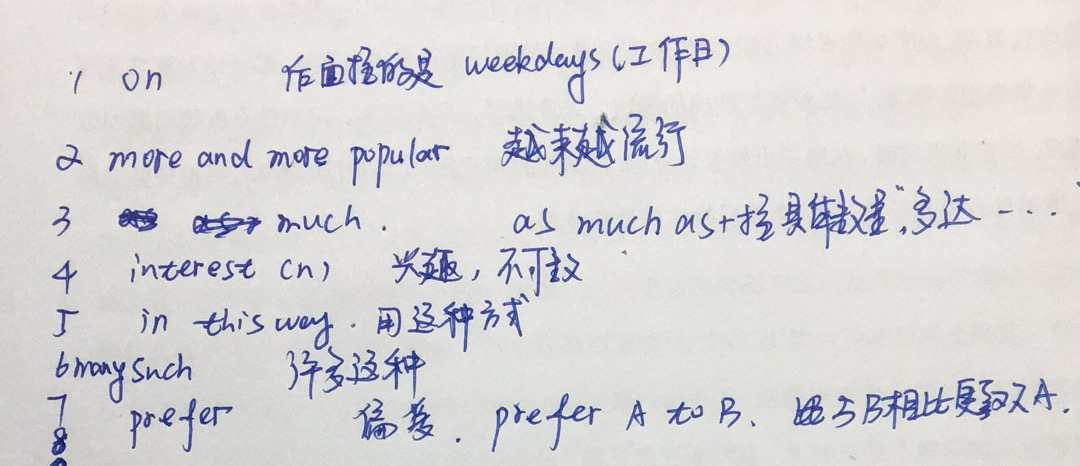 1 on 后面接的是 weekdays(工作日)
2 more and more popular 越来越流行
3 much. as much as+接具体数量"多达----
4 interest (n) 兴趣,不可数
5 in this way. 用这种方式
6 many such 许多这种
7 prefer 偏爱. prefer A to B. 与B相比更 A.
8